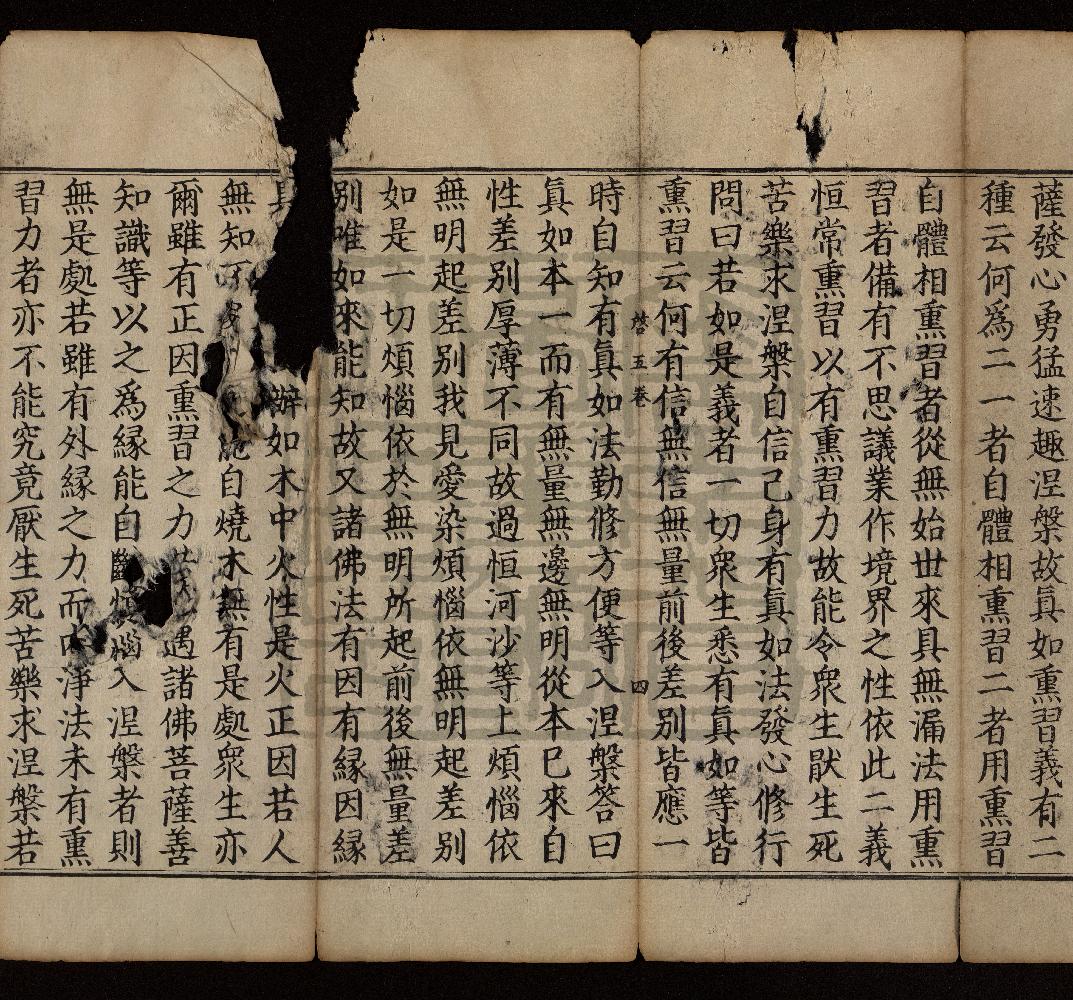 薩發心勇猛速趣涅槃故真如熏習義有二
種云何爲二一者自體相熏習二者用熏習
自體相熏習者從無始世來具無漏法用熏
習者備有不思議業作境界之性依此二義
恒常熏習以有熏習力故能令衆生厭生死
苦樂求涅槃自信己身有真如法發心修行
問曰若如是義者一切衆生悉有真如等皆
熏習云何有信無信無量前後差别皆應一
啓五卷 四
時自知有真如法勤修方便等入涅槃答曰
真如本一而有無量無邊無明從本已來自
性差别厚薄不同故過恒河沙等上煩惱依
無明起差别我見愛染煩惱依無明起差别
如是一切煩惱依於無明所起前後無量差
别唯如來能知故又諸佛法有因有縁因縁
具辦如木中火性是火正因若人
無知自燒木無有是處衆生亦
爾雖有正因熏習之力遇諸佛菩薩善
知識等以之爲縁能自斷煩惱入涅槃者則
無是處若雖有外縁之力而内淨法未有熏
習力者亦不能究竟厭生死苦樂求涅槃若